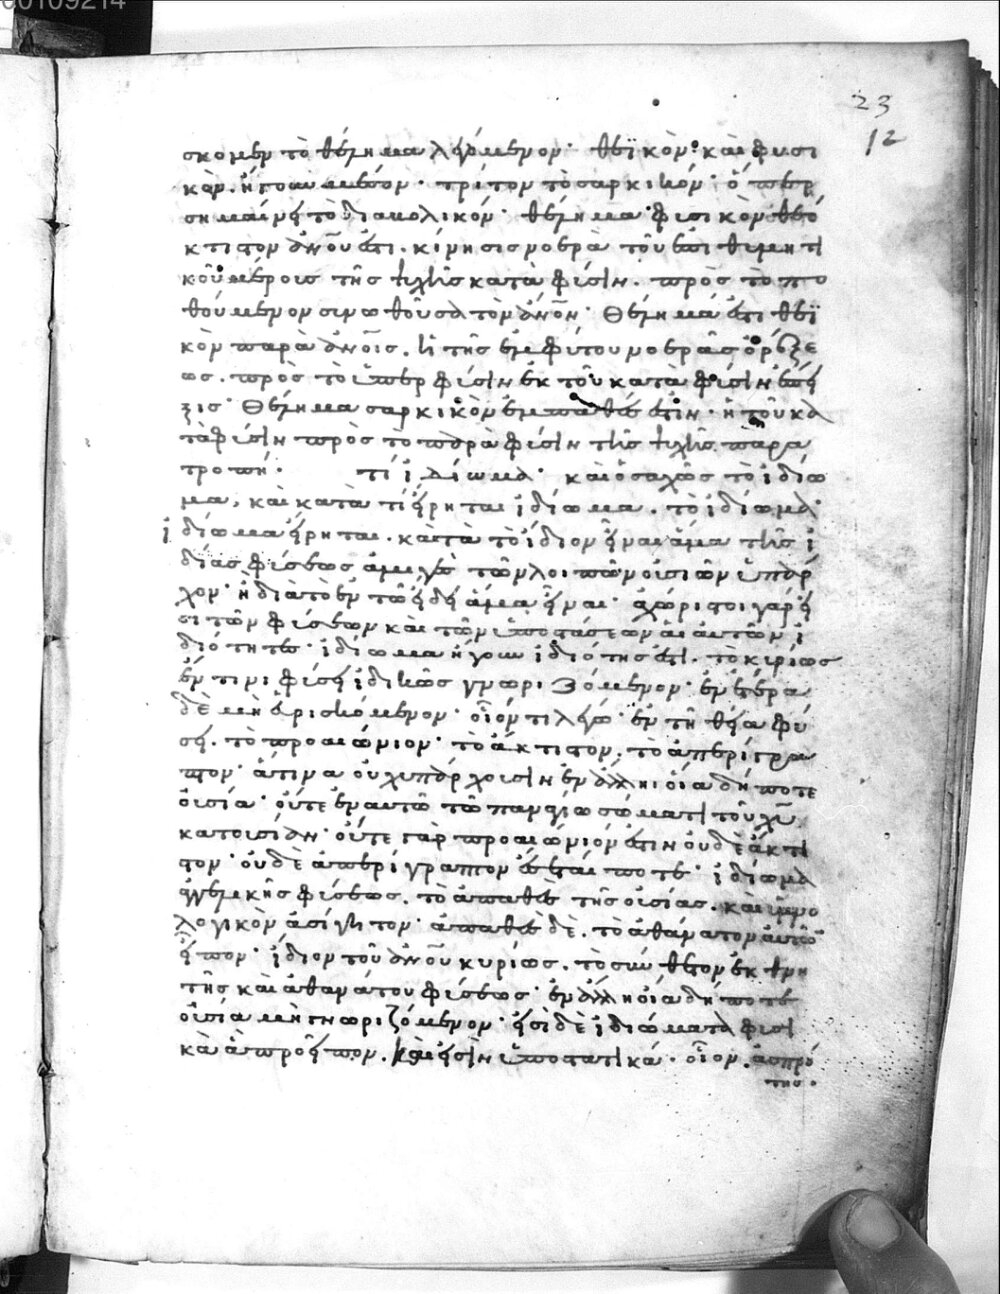 00109214
23
12
σκομεν τὸ θέλημα λεγόμενον· θεϊκὸν· καὶ φυσι
κὸν. ἤγουν μέσον· τρίτον τὸ σαρκικόν· ὅπερ
σημαίνει τὸ διαβολικόν· θέλημα φυσικὸν θεό
κτιστον ἀνου ἐστι. κίνησις νοερὰ τοῦ ἐπιθυμητι
κοῦ μέρους τῆς ψυχῆς κατὰ φύσιν. πρὸς τὸ πο
θούμενον συνωθοῦσα τὸν ἀνον· Θέλημά ἐστι θεϊ
κὸν παρὰ ἀνοις. ἡ τῆς ἐμφύτου νοερᾶς ὀρέξε
ως. πρὸς τὸ ὑπὲρ φύσιν ἐκ τοῦ κατὰ φύσιν
ξις· Θέλημα σαρκικὸν ἐμπαθές ἐστιν· ἡ τοῦ κα
τὰ φύσιν πρὸς τὸ παρὰ φύσιν τῆς ψυχῆς παρα
τροπή· τί ἰδίωμα· καὶ ὁσαχῶς τὸ ἰδίω
μα, καὶ κατὰ τί εἴρηται ἰδίωμα. τὸ ἰδίωμα·
ἰδίωμα εἴρηται. κατὰ τὸ ἴδιον εἶναι ἅμα τῆς ἰ
δίας φύσεως ἀμιγὲς τῶν λοιπῶν οὐσιῶν ὑπάρ
χον· ἢ διὰ τὸ ἐν τῷ εἴδει ἅμα εἶναι· ἀχώριστοι γάρ εἰ
σι τῶν φύσεων καὶ τῶν ὑποστάσεων αἱ αὐτῶν ἰ
διότητες· ἰδίωμα ἤγουν ἰδιότης ἐστι. τὸ κυρίως
ἔν τινι φύσει εἰδικῶς γνωριζόμενον· ἐν ἑτέρα
δὲ μὴ εὑρισκόμενον· οἷόν τι λέγω· ἐν τῇ θεία φύ
σει. τὸ προαιώνιον· τὸ ἄκτιστον· τὸ ἀπερίγρα
πτον· ἅτινα οὐχ ὑπάρχουσιν ἐν ἄλλη οἱαδήποτε
οὐσία· οὔτε ἐν αὐτῷ τῷ παναγίω σώματι τοῦ χυ
κατουσίαν· οὔτε γὰρ προαιώνιόν ἐστιν οὐδὲ ἄκτι
στον· οὐδὲ ἀπερίγραπτον ἔσται ποτέ· ἰδίωμα
ἀγγελικῆς φύσεως. τὸ ἀπαθὲς τῆς οὐσίας. καὶ ὑμνο
λογικὸν ἀσίγητον· ἀπαθὲς δὲ. τὸ ἀθάνατον αὐτῶ
εἶπον· ἴδιον τοῦ ἀνου κυρίως. τὸ σύνθετον ἐκ θνη
τῆς καὶ ἀθανάτου φύσεως· ἐν ἄλλη οἱαδήποτε
οὐσία μὴ γνωριζόμενον· εἰσὶ δὲ ἰδιώματα φυσι
κὰ ἃ προεῖπον. καὶ εἰσὶν ὑποστατικά· οἷον. ἀσπρό
της·